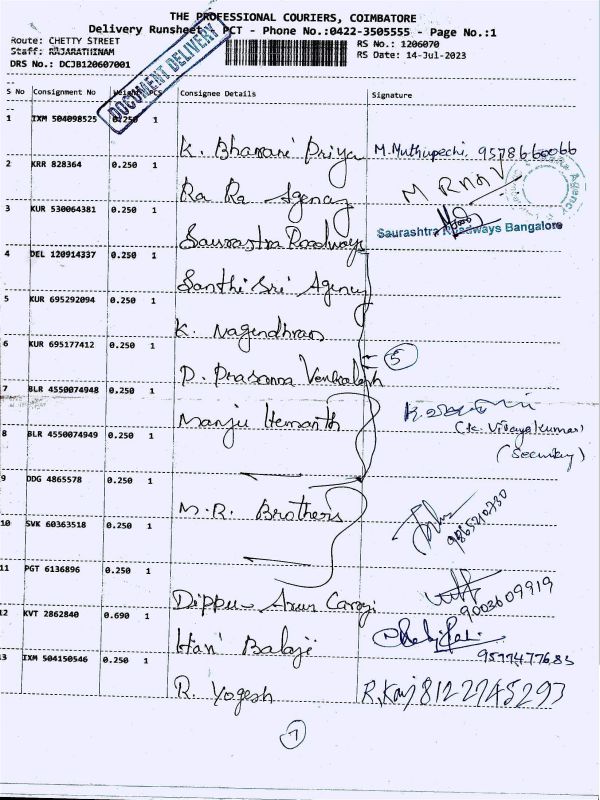 THE PROFESSIONAL COURIERS, COIMBATORE
Delivery Runsheet PCT - Phone No.:0422-3505555 - Page No.:1
Route: CHETTY STREET
Staff: RAJARATHINAM
DRS No.: DCJB120607001
RS No.: 1206070
RS Date: 14-Jul-2023
DOCUMENT DELIVERY
S No Consignment No Weight PCS Consignee Details Signature
1 IXM 504098525 0.250 1
K. Bhavani Priya M.Muthupechi, 9578660066
2 KRR 828364 0.250 1
Ra Ra Agency
3 KUR 530064381 0.250 1
Saurastra Roadways Saurashtra Roadways Bangalore
4 DEL 120914337 0.250 1
Santhi Sri Agency
5 KUR 695292094 0.250 1
K. Nagendhran
6 KUR 695177412 0.250 1
5
P. Prasanna Venkatesh
7 BLR 4550074948 0.250 1
Manju Hemanth
(K. Vijayakumar)
8 BLR 4550074949 0.250 1
(Security)
9 DDG 4865578 0.250 1
M.R. Brothers
10 SVK 60363518 0.250 1
11 PGT 6136896 0.250 1
Dippu - Arun 9003609919
12 KVT 2862840 0.690 1
Hari Balaji
13 IXM 504150546 0.250 1 9577477683
R. Yogesh 8122745293
7